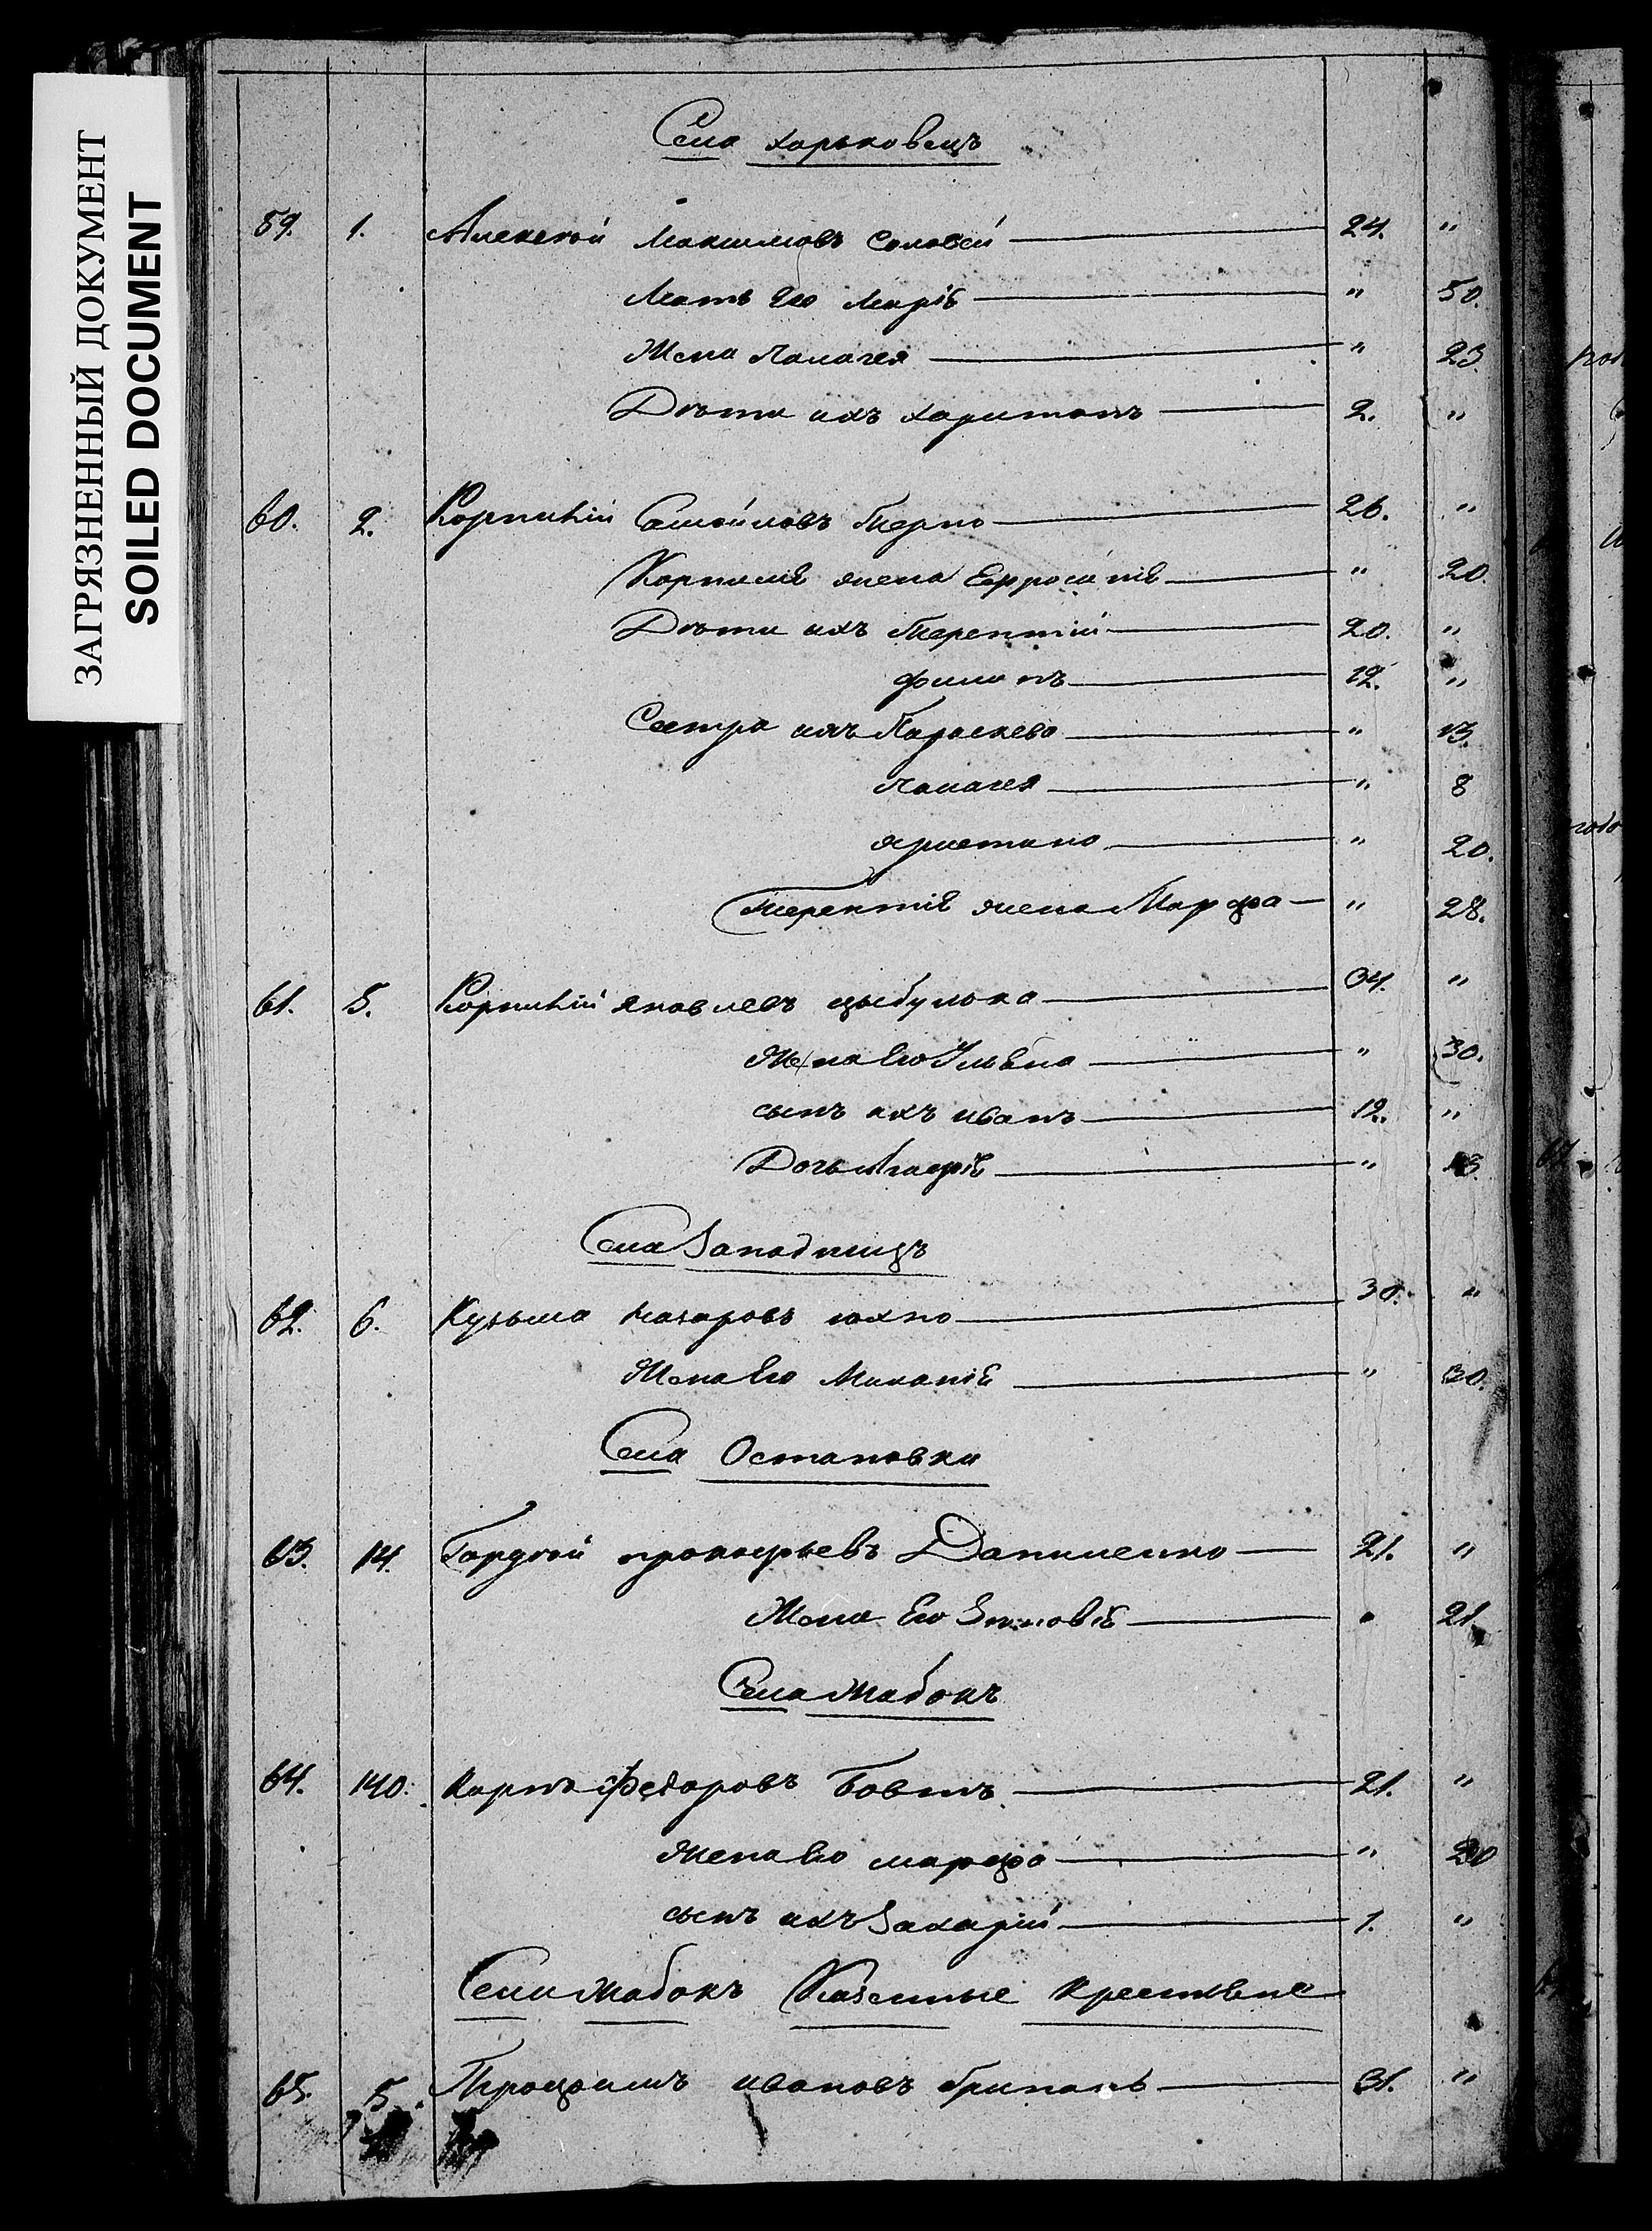 ЗАГРЯЗНЕННЫЙ ДОКУМЕНТ
SOILED DOCUMENT
Села Харьковецъ
59. 1. Алексѣй Максимовъ Соловей 24. "
Мать Его Марія " 50.
Жена Палагея " 23.
Дѣти ихъ Харитонъ 2. "
60. 2. Корнилій Самойловъ Терно 26. "
Корнилія жена Ефросинія " 20.
Дѣти ихъ Терентій 20. "
Филипъ 12. "
Сестра ихъ Параскева " 13.
Палагея " 8
Христина " 20.
Терентія жена Марфа " 28.
61. 5. Корнилій Яковлевъ Цыбулька 34. "
Жена Его Ульяна " 30.
сынъ ихъ Иванъ 12. "
Дочь Агафія " 13.
Села Западинцъ
62. 6. Кузьма Назаровъ Юхно 30. "
Жена Его Миланія " 30.
Села Остаповки
63. 14. Гордѣй Прокофьевъ Даниленко 21. "
Жена Его Зиновія " 21.
Села Жабокъ
64. 140. Карпъ Федоровъ Бовтъ 21. "
Жена Его Марфа " 20
сынъ ихъ Захарій 1. "
Села Жабокъ Казенные Крестьяне
65. 5. Трофимъ Ивановъ 31. "